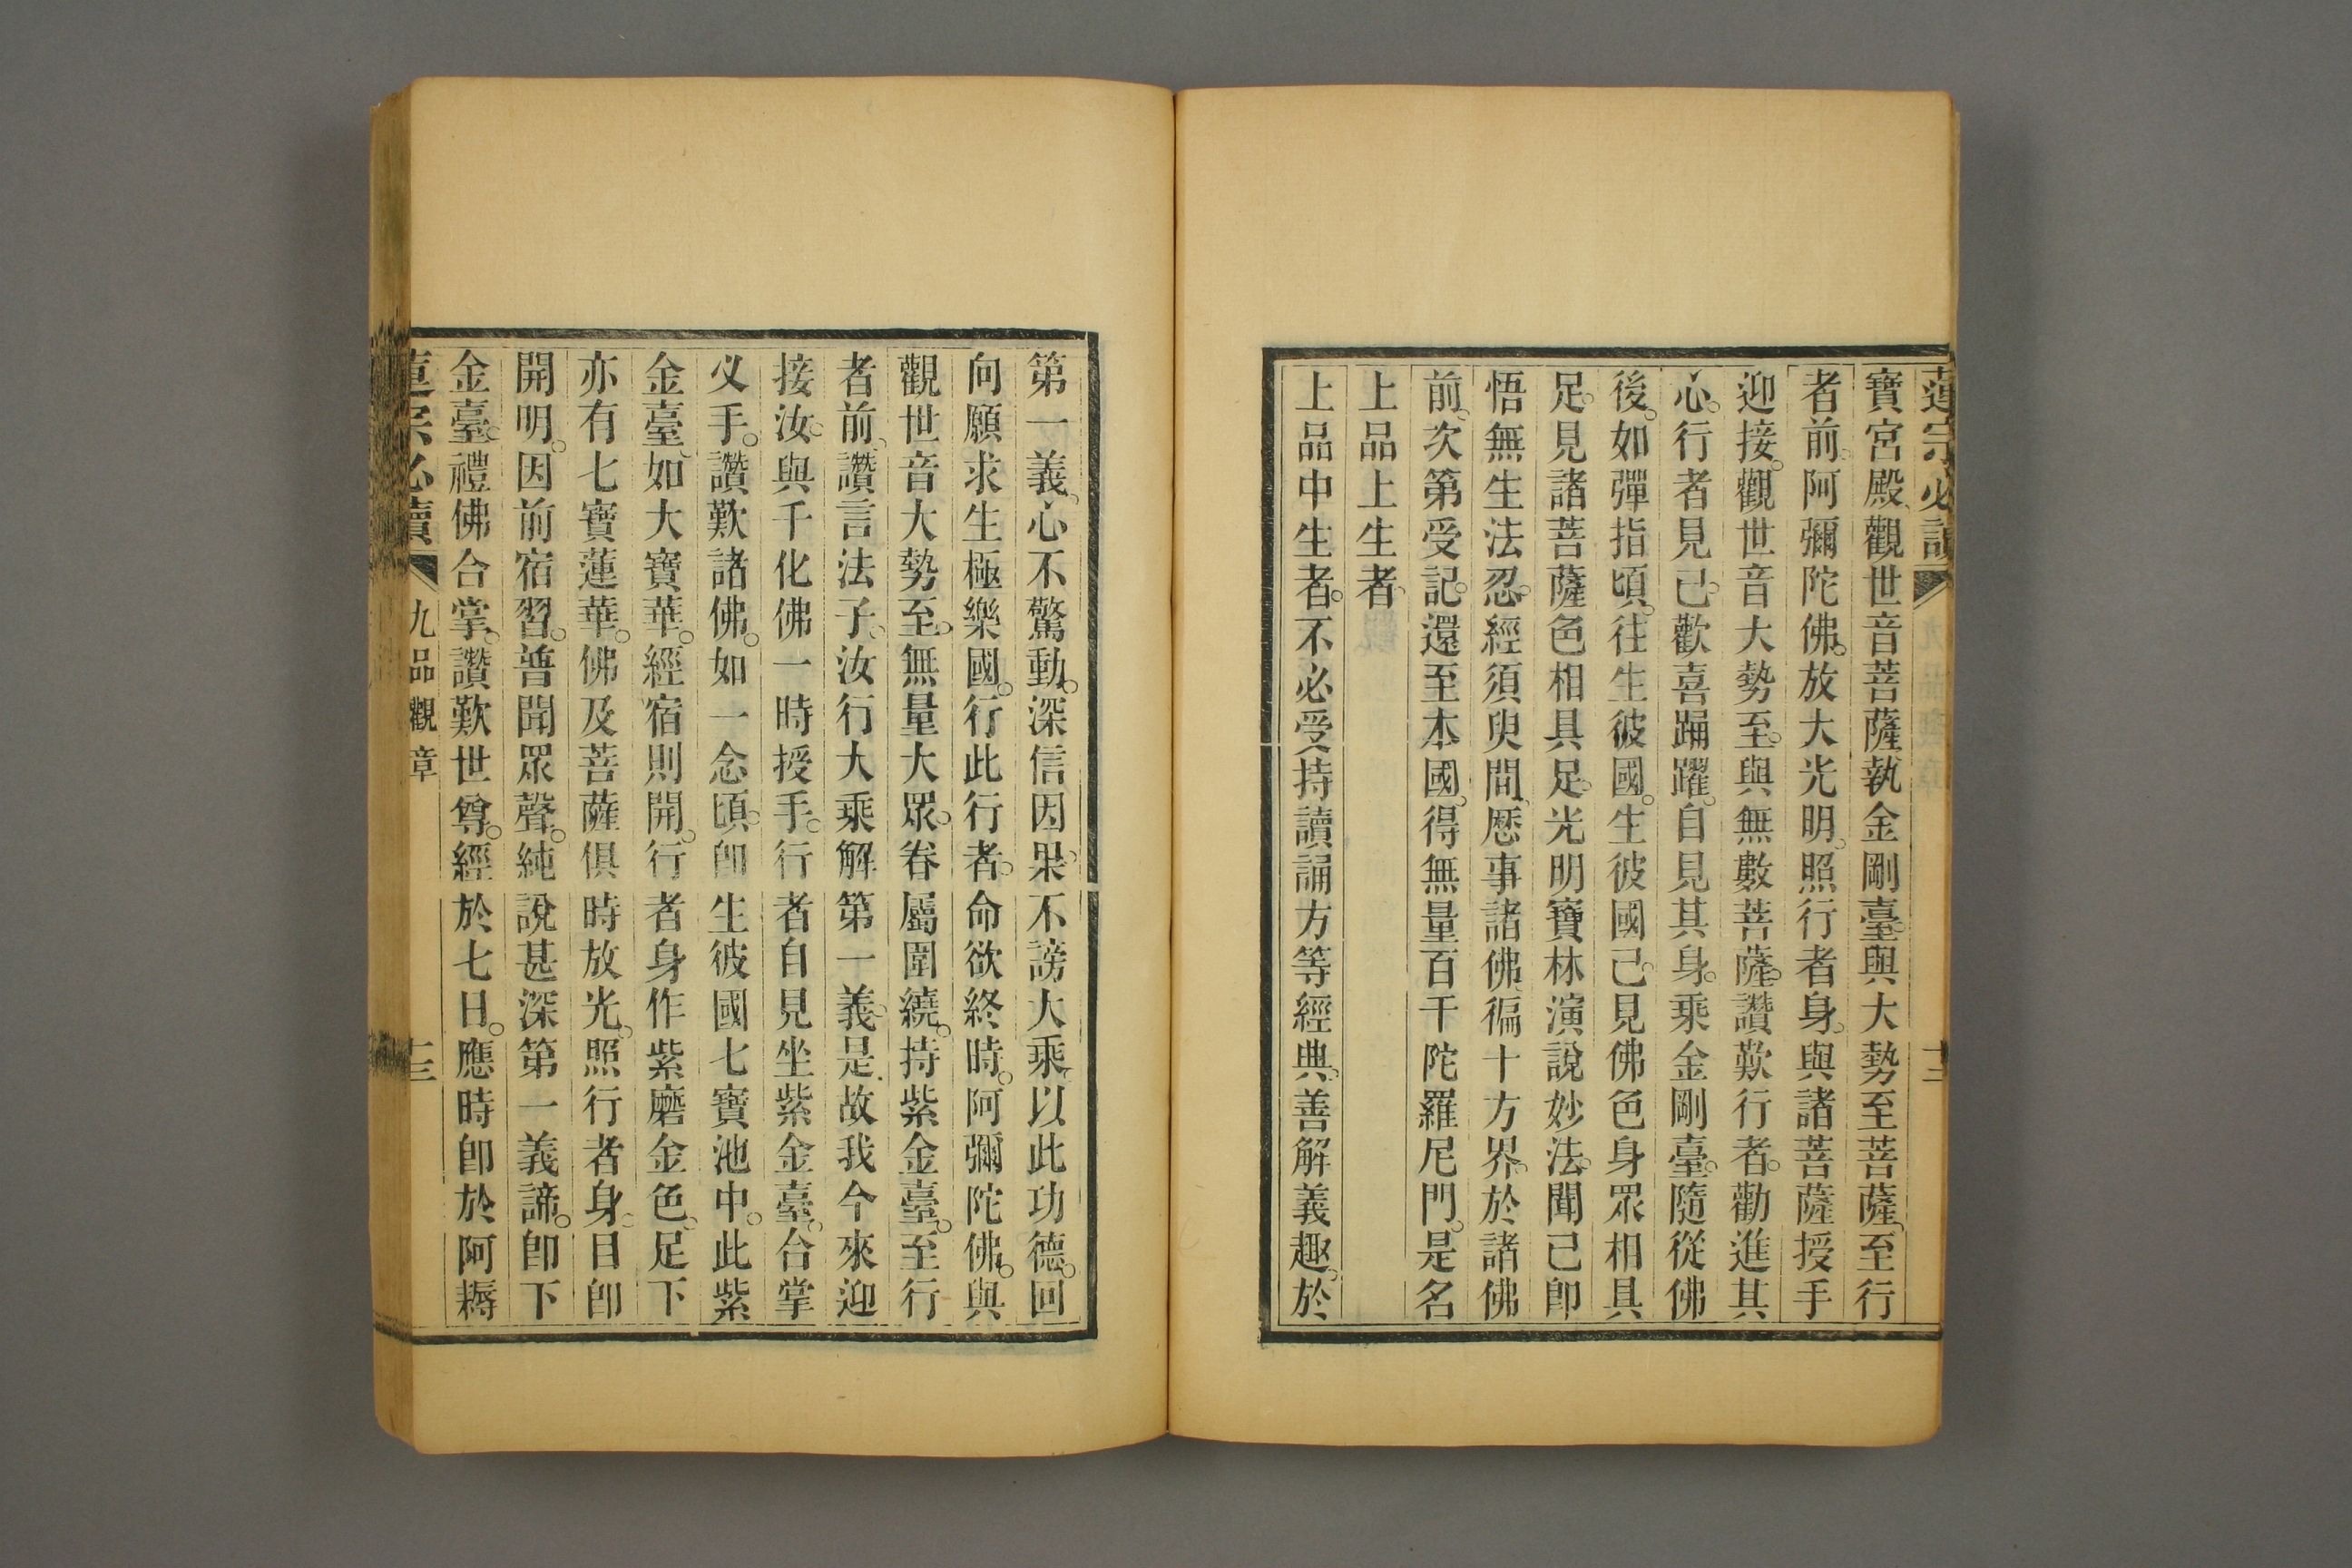 蓮宗必讀
十二
寶宮殿、觀世音菩薩執金剛臺。與大勢至菩薩、至行
者前。阿彌陀佛。放大光明。照行者身。與諸菩薩授手
迎接。觀世音大勢至。與無數菩薩。讚歎行者。勸進其
心。行者見已。歡喜踊躍。自見其身。乘金剛臺。隨從佛
後。如彈指頃。往生彼國。生彼國已。見佛色身眾相具
足。見諸菩薩色相具足。光明寶林演說妙法。聞已即
悟無生法忍。經須臾間、歷事諸佛、徧十方界。於諸佛
前。次第受記。還至本國。得無量百千陀羅尼門。是名
上品上生者、
上品中生者。不必受持讀誦方等經典。善解義趣。於
第一義。心不驚動。深信因果。不謗大乘。以此功德。回
向願求生極樂國。行此行者。命欲終時。阿彌陀佛。與
觀世音大勢至。無量大眾。眷屬圍繞。持紫金臺。至行
者前、讚言法子。汝行大乘解第一義。是故我今來迎
接汝。與千化佛一時授手。行者自見坐紫金臺。合掌
叉手。讚歎諸佛。如一念頃。即生彼國七寶池中。此紫
金臺、如大寶華。經宿則開。行者身作紫磨金色。足下
亦有七寶蓮華。佛及菩薩俱時放光。照行者身。目即
開明。因前宿習。普聞眾聲。純說甚深第一義諦。即下
金臺。禮佛合掌。讚歎世尊。經於七日。應時即於阿耨
蓮宗必讀
九品觀章
十三